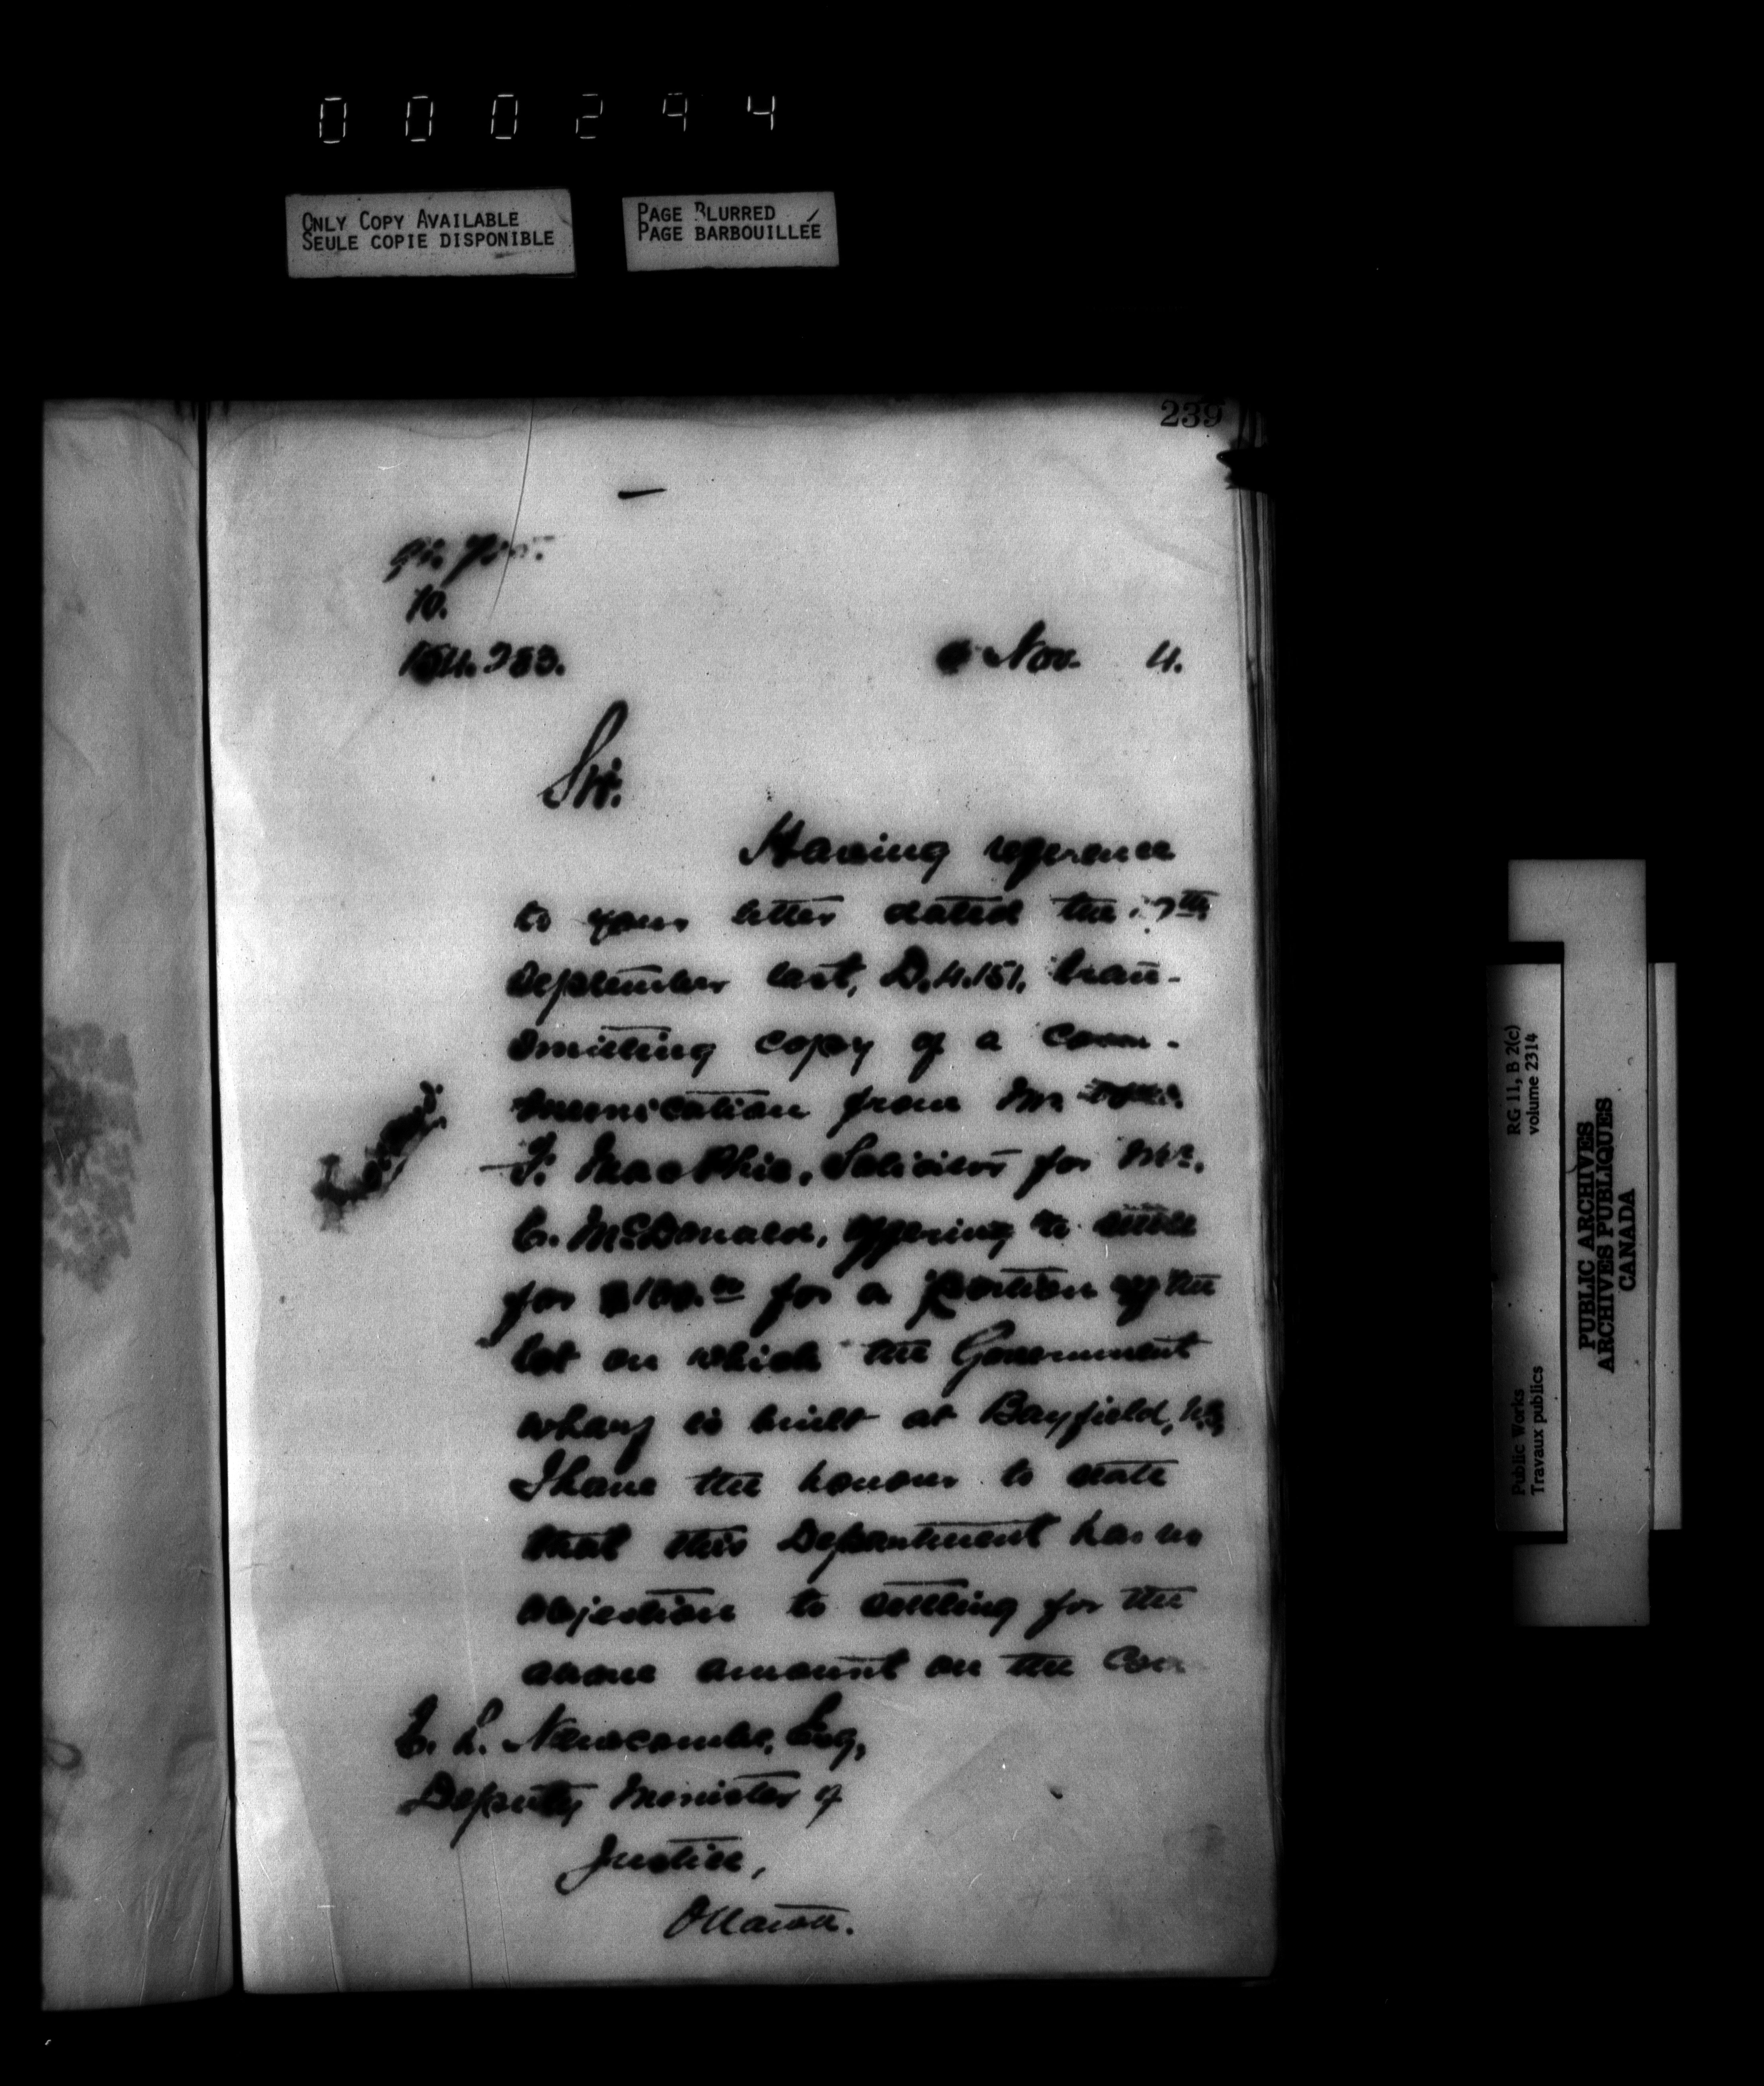 000294
ONLY COPY AVAILABLE
SEULE COPIE DISPONIBLE
PAGE BLURRED
PAGE BARBOUILLÉE
239
10.
Nov. 4.
Sir.
Having reference
to your letter dated the
September last, D.4.151, tran-
smitting copy of a com-
munication from Mr
F. MacPhie, Solicitor for Mr.
C. McDonald, offering to settle
for $100.00 for a portion of the
lot on which the Government
wharf is built at Bayfield, N.S,
I have the honour to state
that this Department has no
objection to settling for the
above amount on the con
E. L. Newcombe, Esq,
Deputy Minister of
Justice,
Ottawa.
RG 11, B 2(c)
volume 2314
Public Works
Travaux publics
PUBLIC ARCHIVES
ARCHIVES PUBLIQUES
CANADA